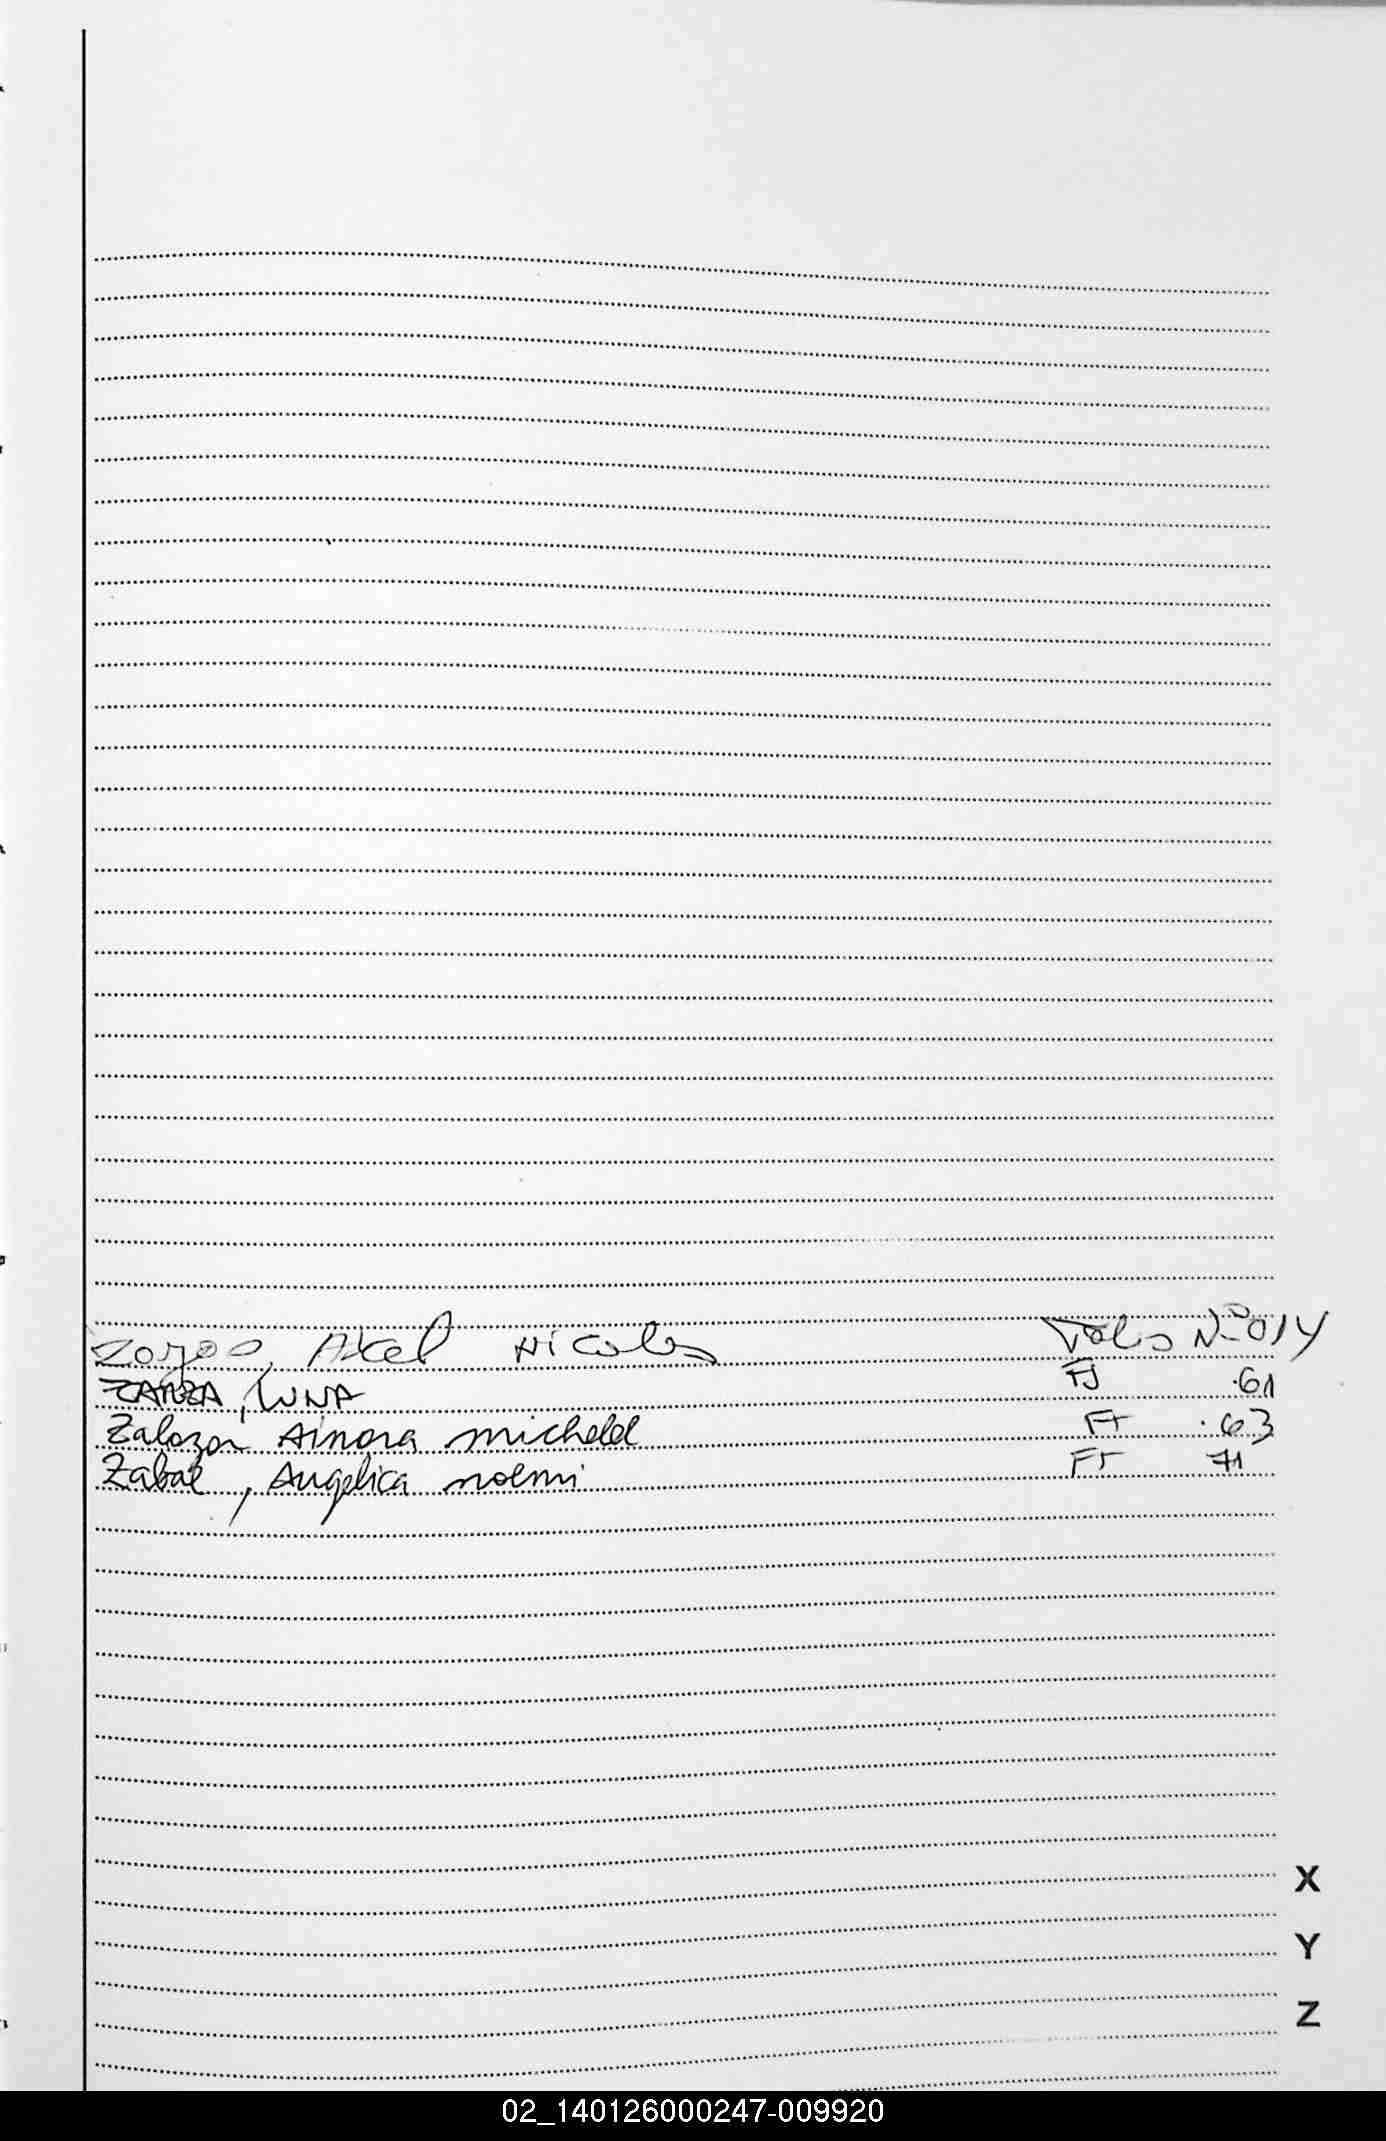 Zoyos, Axel Nicolas Folio Nº 014
ZARZA, LUNA FJ 61
Zalazar Ainara michelel Fr 63
Zabal, Angelica noemi Fr 71
X
Y
Z
02_140126000247-009920